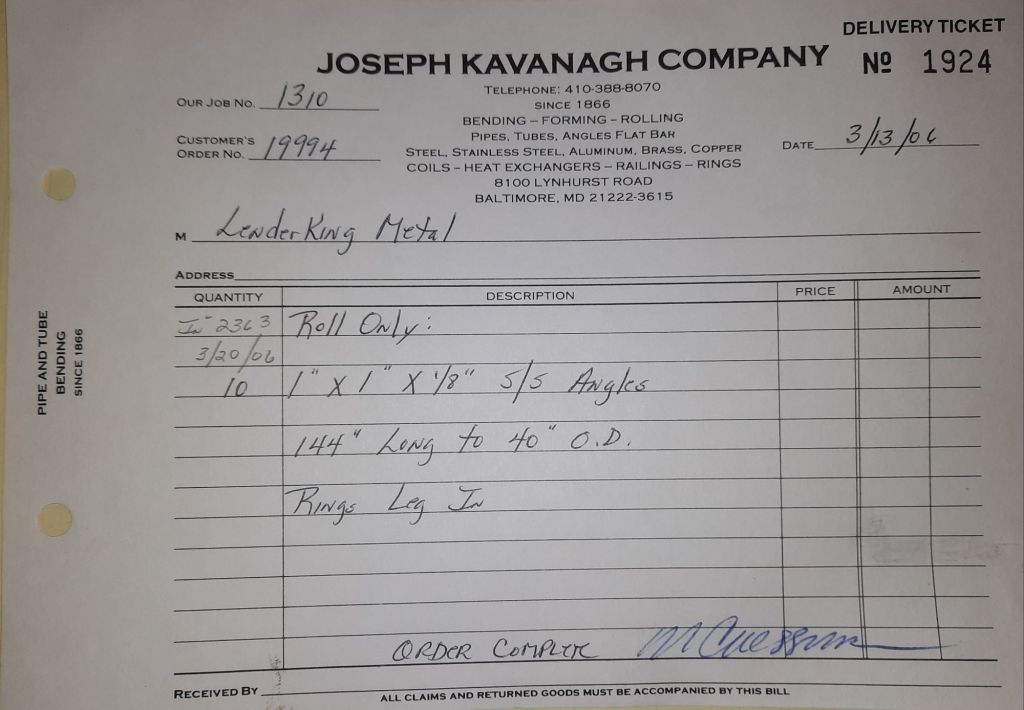 DELIVERY TICKET
JOSEPH KAVANAGH COMPANY
Nº 1924
TELEPHONE: 410-388-8070
SINCE 1866
BENDING – FORMING – ROLLING
PIPES, TUBES, ANGLES FLAT BAR
STEEL, STAINLESS STEEL, ALUMINUM, BRASS, COPPER
COILS – HEAT EXCHANGERS – RAILINGS – RINGS
8100 LYNHURST ROAD
BALTIMORE, MD 21222-3615
OUR JOB NO. 1310
CUSTOMER'S
ORDER NO. 19994
DATE 3/13/06
M LenderKing Metal
ADDRESS
QUANTITY DESCRIPTION PRICE AMOUNT
2363 Roll Only:
3/20/06
10 1" X 1" X 1/8" S/S Angles
144" Long to 40" O.D.
Rings Leg In
ORDER COMPLETE
RECEIVED BY
ALL CLAIMS AND RETURNED GOODS MUST BE ACCOMPANIED BY THIS BILL
PIPE AND TUBE
BENDING
SINCE 1866